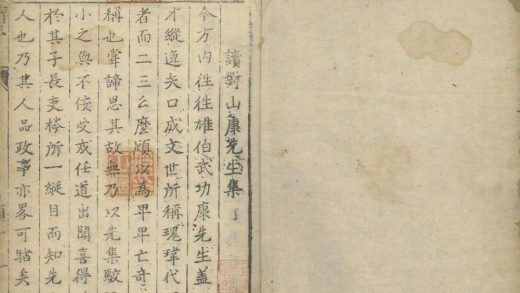 讀對山康先生集
今方內往往雄伯武功康先生蓋
才縱逸矢口成文世所稱瑰瑋代
者而二三么麼顧以為卑卑亡奇
稱也嘗諦思其故無乃以先集駮
小之與不佞受戎任道出聞喜得
於其子長吏楼所一縱目而知先
人也乃其人品政事亦畧可睹矣